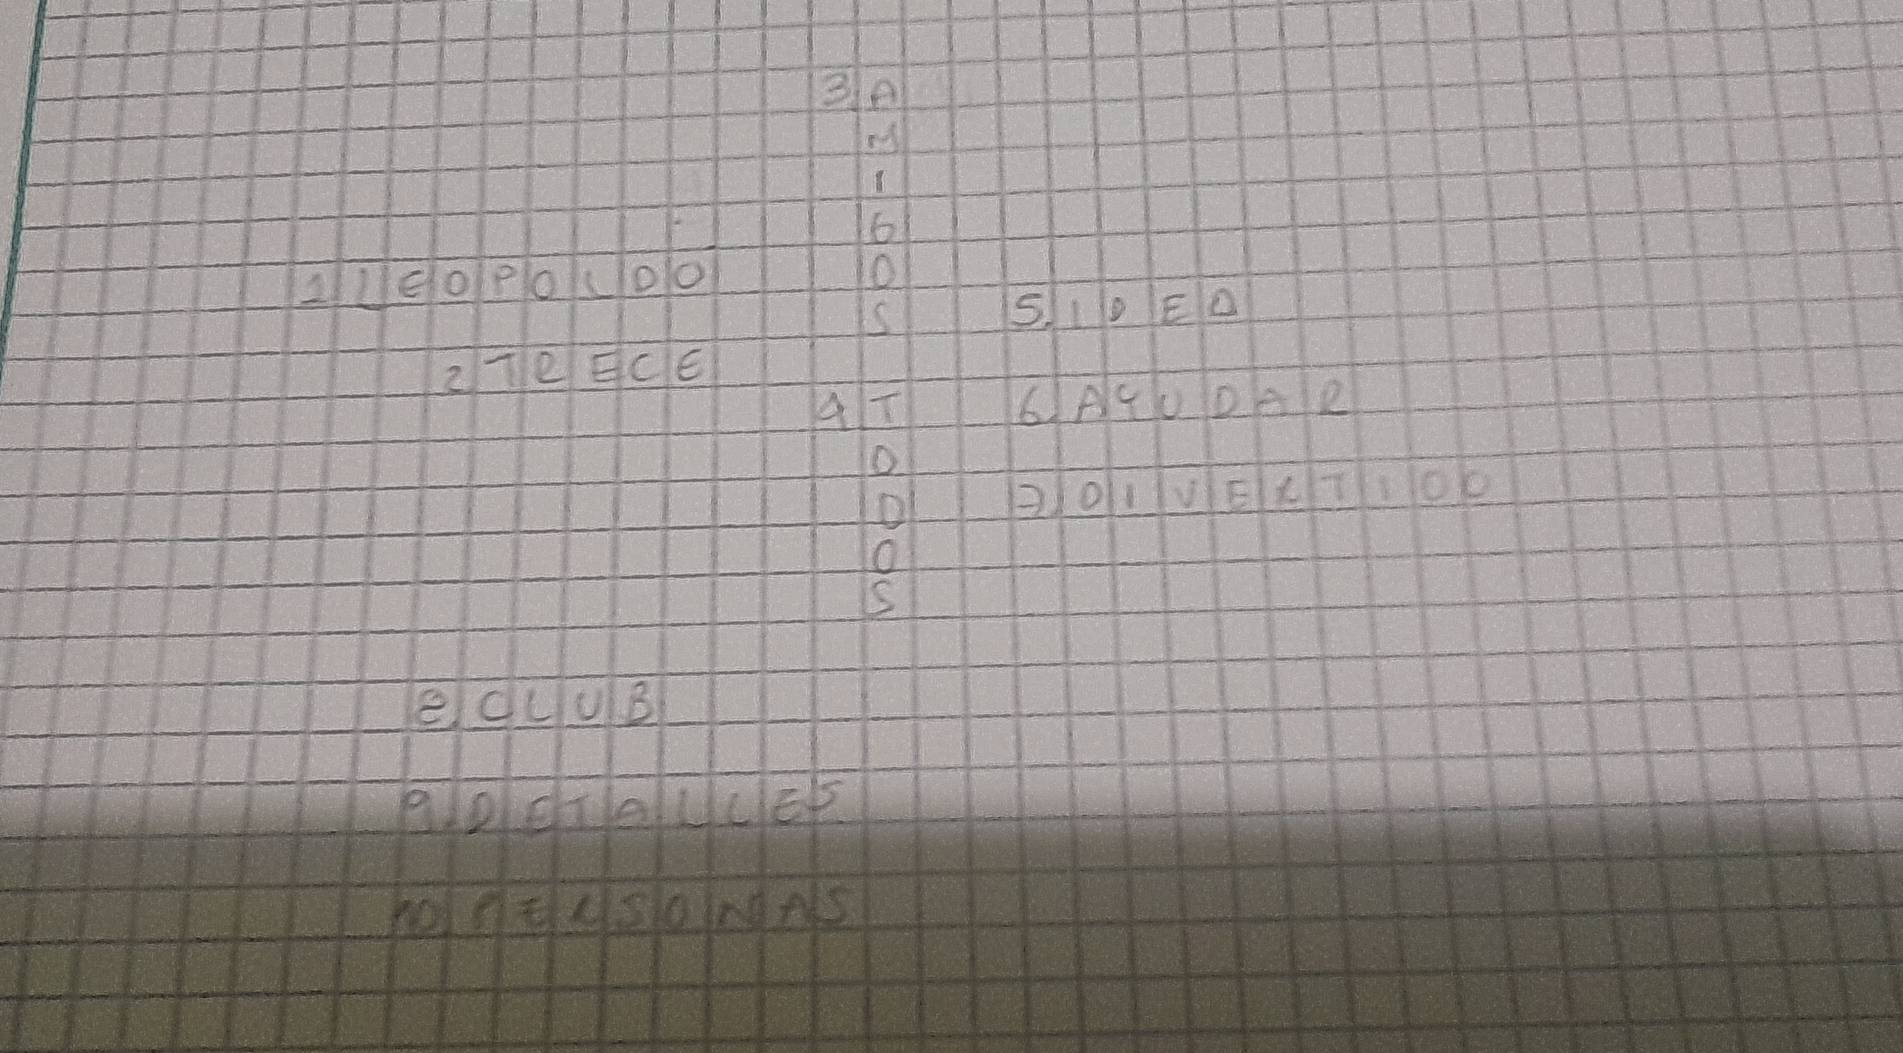 3 AMIGOS
1 LEOPOLDO
5 IDEA
2 TRECE
4 TODOS
6 AYUDAR
7 DIVERTIDO
8 CLUB
9 DETALLES
10 PERSONAS